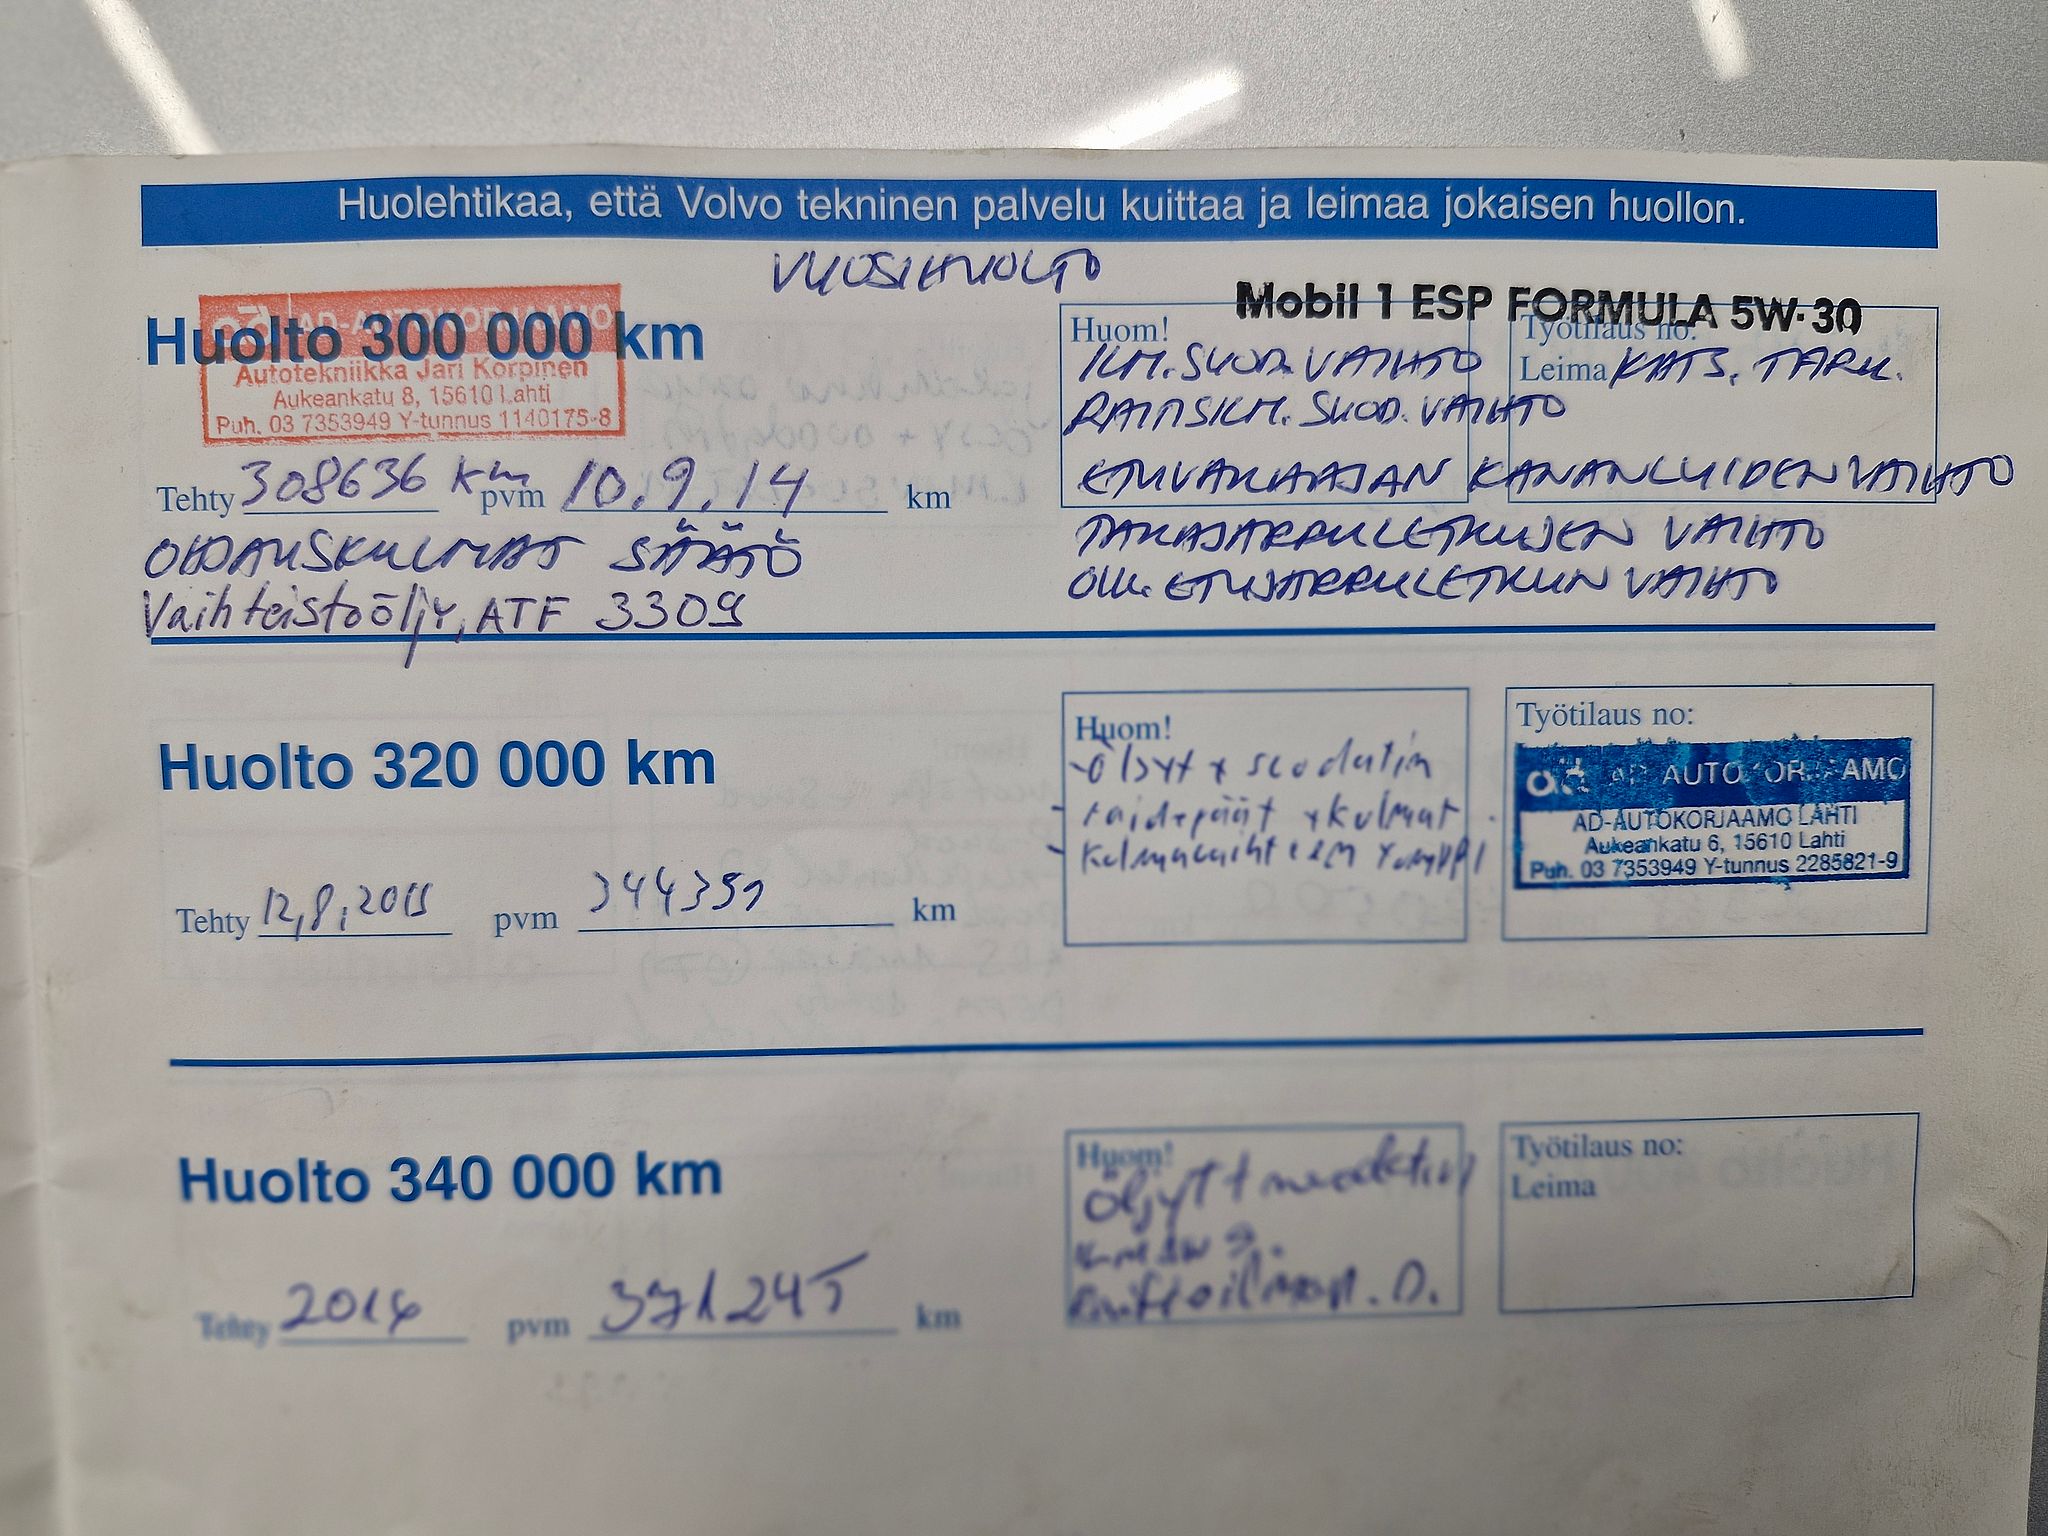 Huolehtikaa, että Volvo tekninen palvelu kuittaa ja leimaa jokaisen huollon.
VUOSIHUOLTO
AD-AUTOKORJAAMO
Huolto 300 000 km
Autotekniikka Jari Korpinen
Aukeankatu 8, 15610 Lahti
Puh. 03 7353949 Y-tunnus 1140175-8
Tehty 308636 km pvm 10.9.14 km
OHJAUSKULMAT SÄÄTÖ
Vaihteistoöljy, ATF 3309
Mobil 1 ESP FORMULA 5W-30
Huom!
ILM.SUOD.VAIHTO
RAITISILM. SUOD. VAIHTO
ETUVAKAAJAN KANANLUIDEN VAIHTO
TAKAJARRULETKUJEN VAIHTO
OIK. ETUJARRULETKUN VAIHTO
Työtilaus no:
Leima KATS. TARK.
Huolto 320 000 km
Tehty 12,8,2015 pvm 344351 km
Huom!
-Öljyt + suodatin
- raidepäät + kulmat
-
Työtilaus no:
ad AD AUTOKORJAAMO
AD-AUTOKORJAAMO LAHTI
Aukeankatu 6, 15610 Lahti
Puh. 03 7353949 Y-tunnus 2285821-9
Huolto 340 000 km
Tehty 2016 pvm 371245 km
Huom!
Öljyt +
Työtilaus no:
Leima